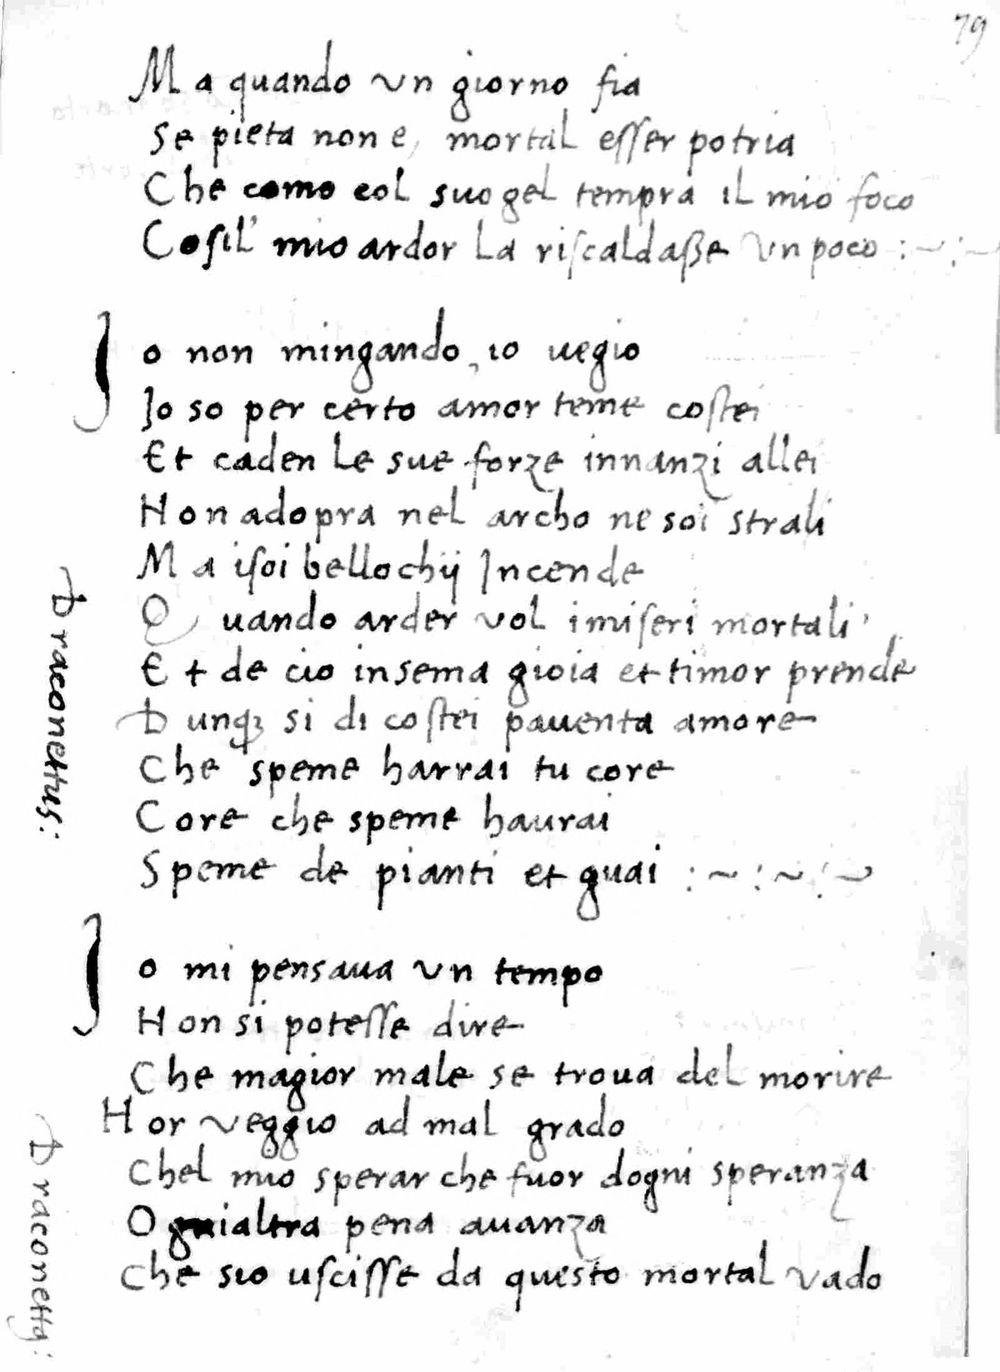 79
Ma quando un giorno fia
Se pieta non e, mortal esser potria
Che como col suo gel tempra il mio foco
Cosil' mio ardor la riscaldaße un poco :~:~
Io non mingando, io uegio
Io so per certo amor teme costei
Et caden le sue forze innanzi allei
Non adopra nel archo ne soi strali
Ma isoi bellochij Incende
Quando arder vol i miseri mortali
Et de cio insema gioia et timor prende
Dunqꝫ si di costei pauenta amore
Che speme harrai tu core
Core che speme haurai
Speme de pianti et guai :~:~:~
Draconettus:
Io mi pensaua un tempo
Non si potesse dire
Che magior male se troua del morire
Hor veggio ad mal grado
Chel mio sperar che fuor dogni speranza
Ognialtra pena auanza
Che sio uscisse da questo mortal vado
Draconettꝰ: